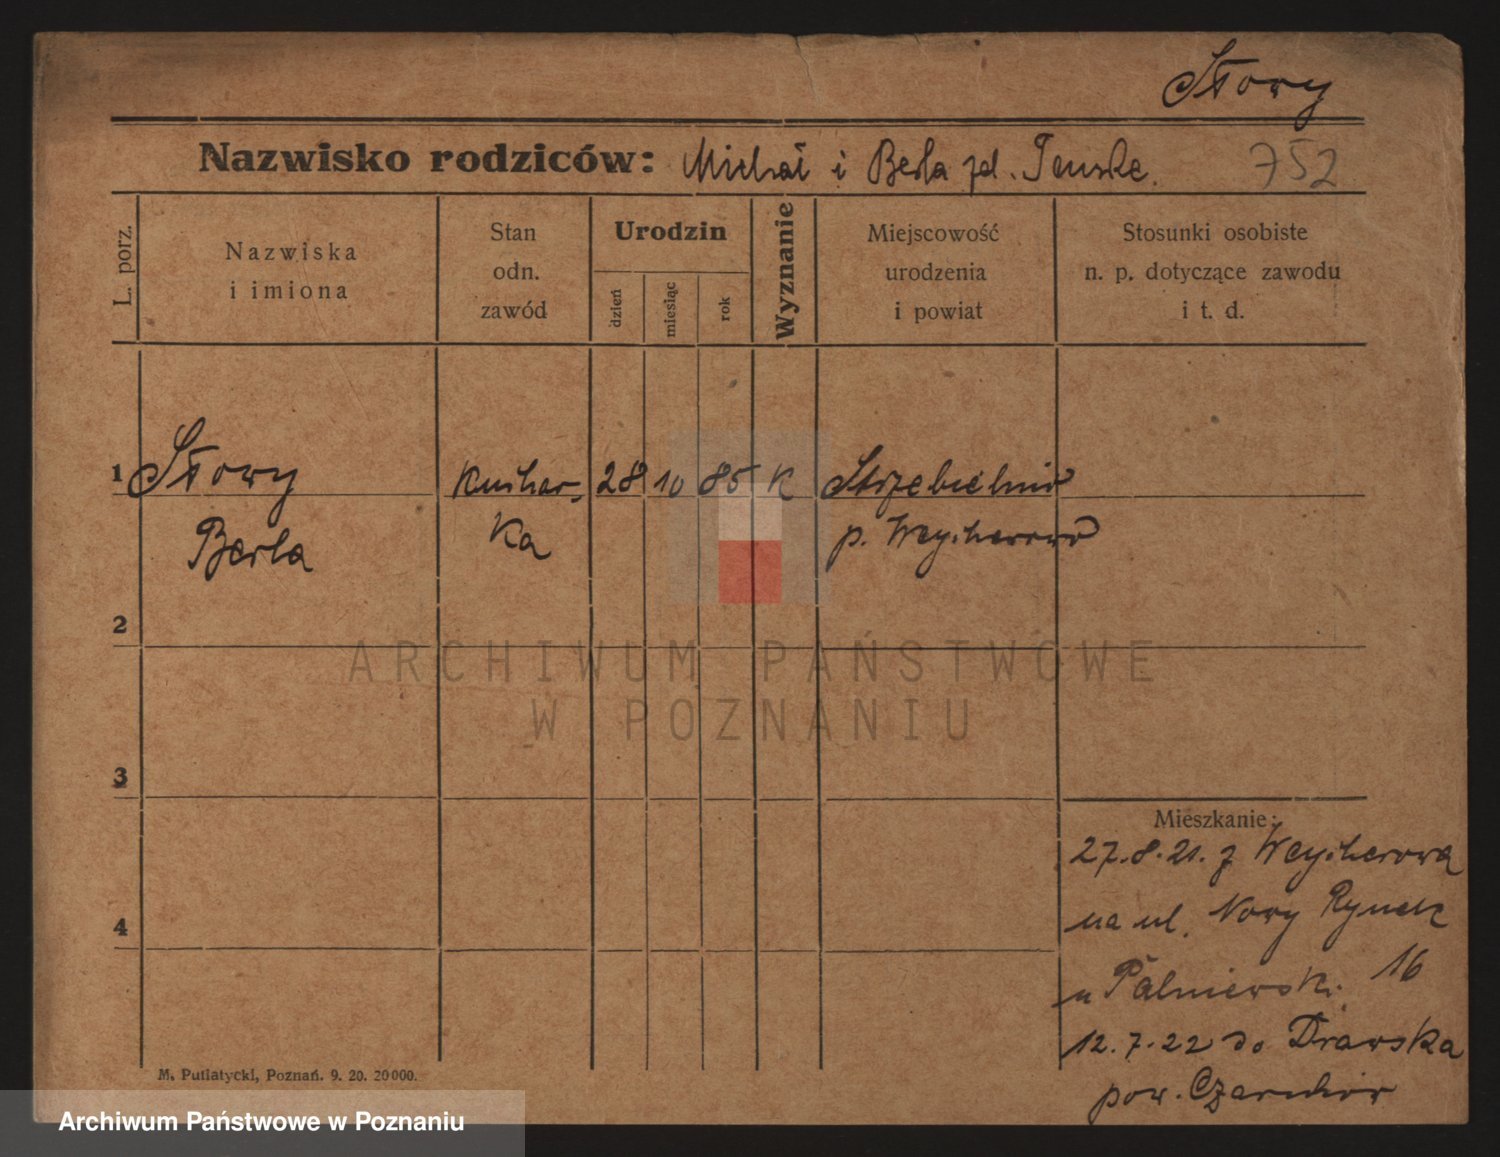 Stowy
Nazwisko rodziców: Michał i Berta zd. Tenske. 752
L. porz.
Nazwiska
i imiona
Stan
odn.
zawód
Urodzin
dzień
miesiąc
rok
Wyznanie
Miejscowość
urodzenia
i powiat
Stosunki osobiste
n. p. dotyczące zawodu
i t. d.
1 Stowy kuchar- 28 10 85 K Strzebielino
Berta ka p. Weyherowo
2
3
4
Mieszkanie:
27.8.21. z Weyherowa
na ul. Nowy Rynek
16
12.7.22 do Drawska
pow. Czarnków
M. Putiatycki, Poznań. 9. 20. 20000.
ARCHIWUM PAŃSTWOWE
W POZNANIU
Archiwum Państwowe w Poznaniu